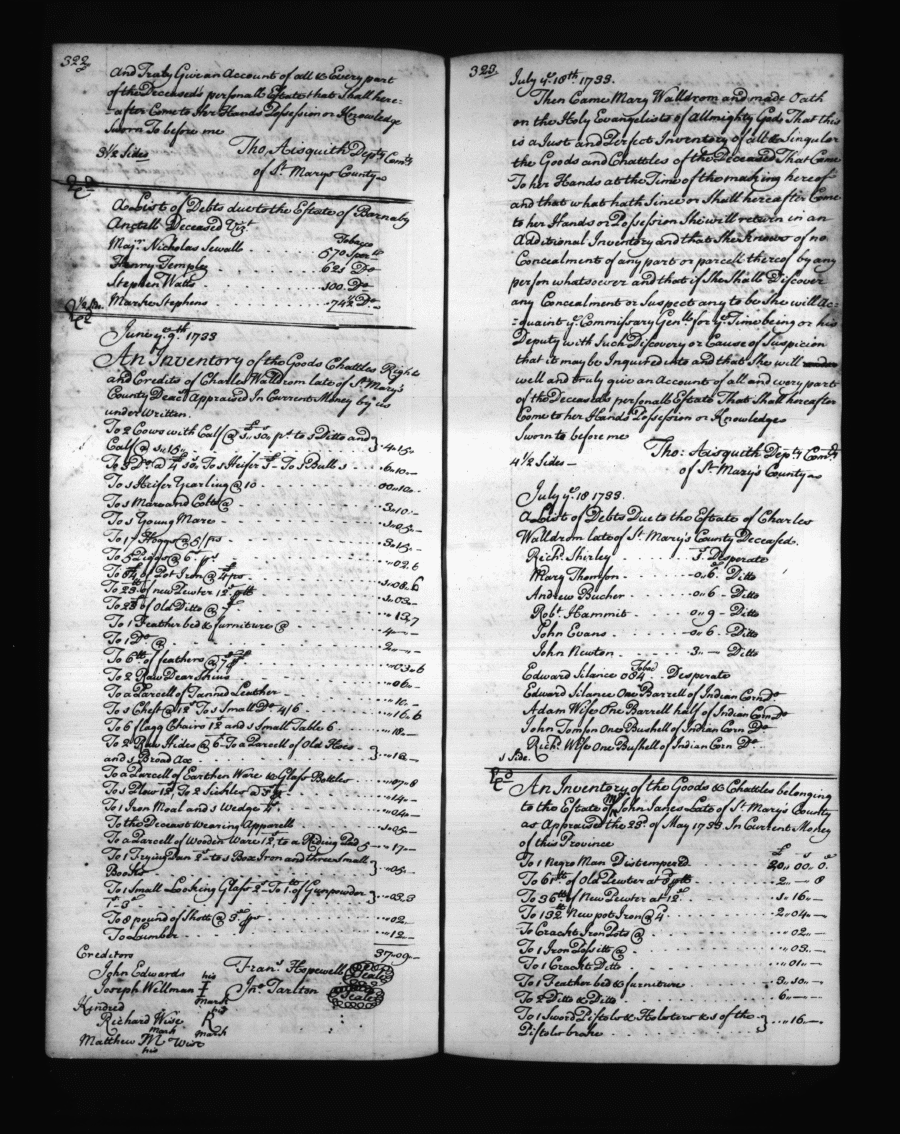 322
And Truly Give an Account of all & Every part
of the Deceased's personall Estate that shall here=
=after Come to Her Hands Possession or Knowledge
Sworn To before me
3 1/2 Sides Tho, Aisquith Depty Comry
of St Marys County
A List of Debts due to the Estate of Barnaby
Anctell Deceased Vizt
Tobacco
Majr Nicholas Sewalls 570
Henry Temples 621 Do
Stephen Watts 100 Do
Marke Stephens 748 Do
June ye 9th 1733
An Inventory of the Goods Chattles Rights
and Credits of Charles Walldrom late of St Mary's
County Deact Appraised In Current Money by us
underWritten.
To 2 Cows with Calf @ pr to 1 Ditto and
Calf @ 1..15.. } 4..15..
To 3 Do @ To 1 Heifer To 1 Bull 1 6..10..
To 1 Heifer Yearling @ 10 00..10..
To 1 Mare and Colt @ 3..10..
To 1 Young Mare 1..05..
To 17 Hoggs @ 5/ps 3..15..
To 5 Piggs @ 6 02..6
To of Pot Iron @ 4 1..08..6
To 23 lb of new Pewter 12d 1..03..
To 28 of Old Ditto @ 13..7
To 1 Feather bed & furniture @ 4
To 1 Do @ 2
To 6 lb of feathers @ 7 03..6
To 2 Raw Dear Skins 06..
To a Parcell of Tanned Leather 10..
To 1 Chest @ 12 To 1 Small Do 4/6 16..6
To 6 flagg Chairs 12 and 1 Small Table 6 18..
To 2 Raw Hides @ 6 To a Parcell of Old Hoes
and 1 Broad Ax } 18..
To a Parcell of Earthen Ware & Glass Bottles 07..8
To 1 Plow 12, To 2 Sickles 14..
To 1 Iron Moal and 1 Wedge 04..
To the Deceast Wearing Apparell 1..05..
To a Parcell of Wooden Ware 12, to a Riding Pad 5 17..
To 1 Frying Pan 2 to 1 Box Iron and three Small
Books } 05..
To 1 Small Looking Glass 2 To 1 lb of Gunpowder
1s 3d } 03..3
To 8 pound of Shott @ 3d 02..
To Lumber 12..
37..09..
Creditors
John Edwards Frans Hopewell Seale
Joseph Wellman his mark Jno Tarlton Seale
Kindred
Richard Wise R his mark
Matthew M Wise
mark
his
323
July ye 18th 1733.
Then Came Mary Walldrom and made Oath
on the Holy Evangelists of Allmighty God That this
is a Just and Perfect Inventory of all & Singular
the Goods and Chattles of the Deceased That Came
To her Hands at the Time of the making hereof
and that what hath Since or Shall hereafter Come
to her Hands or Possession She will return in an
Additional Inventory and that She Knows of no
Concealment of any part or parcell thereof by any
person whatsoever and that if She Shall Discover
any Concealment or Suspect any to be She will Ac=
=quaint ye Commissary Genll for ye Time being or his
Deputy with Such Discovery or Cause of Suspicion
that it may be Inquired into and that She will
well and truly give an Account of all and every part
of the deceased's personall Estate That Shall hereafter
Come to her Hands Possession or Knowledge
Sworn to before me
4 1/2 Sides Tho: Aisquith Depty Comry
of St Mary's County
July ye 18 1733.
A List of Debts Due to the Estate of Charles
Walldrom late of St Mary's County Deceased.
Richd Shirley 3 Desperate
Mary Thomson 0..6 Ditto
Andrew Bucher 0..6 Ditto
Robt Hammit 0..9 Ditto
John Evans 0..6 Ditto
John Newton 3.. Ditto
Edward Silance 084 Tobo Desperate
Edward Silance One Barrell of Indian Corn Do
Adam Wise One Barrell half of Indian Corn Do
John Tomson One Bushell of Indian Corn Do
Richd Wise One Bushell of Indian Corn Do
1 Side.
An Inventory of the Goods & Chattles belonging
to the Estate of Mr John Janes Late of St Mary's County
as Appraised the 23d of May 1733. In Current Money
of this Province
£ s d
To 1 Negro Man Distempered 20..00..0
To 61 lb of Old Pewter at 8 2..8
To 36 lb of New Pewter at 12 1..16..
To 132 New pot Iron @ 4 2..04..
To Crackt Iron Pots @ 02..
To 1 Iron Possitt @ 03..
To 1 Crackt Ditto 01..
To 1 Feather bed & furniture 3..10..
To 2 Ditto & Ditto 6
To 1 Sword Pistols & Holsters & 1 of the
Pistols broke } 16..